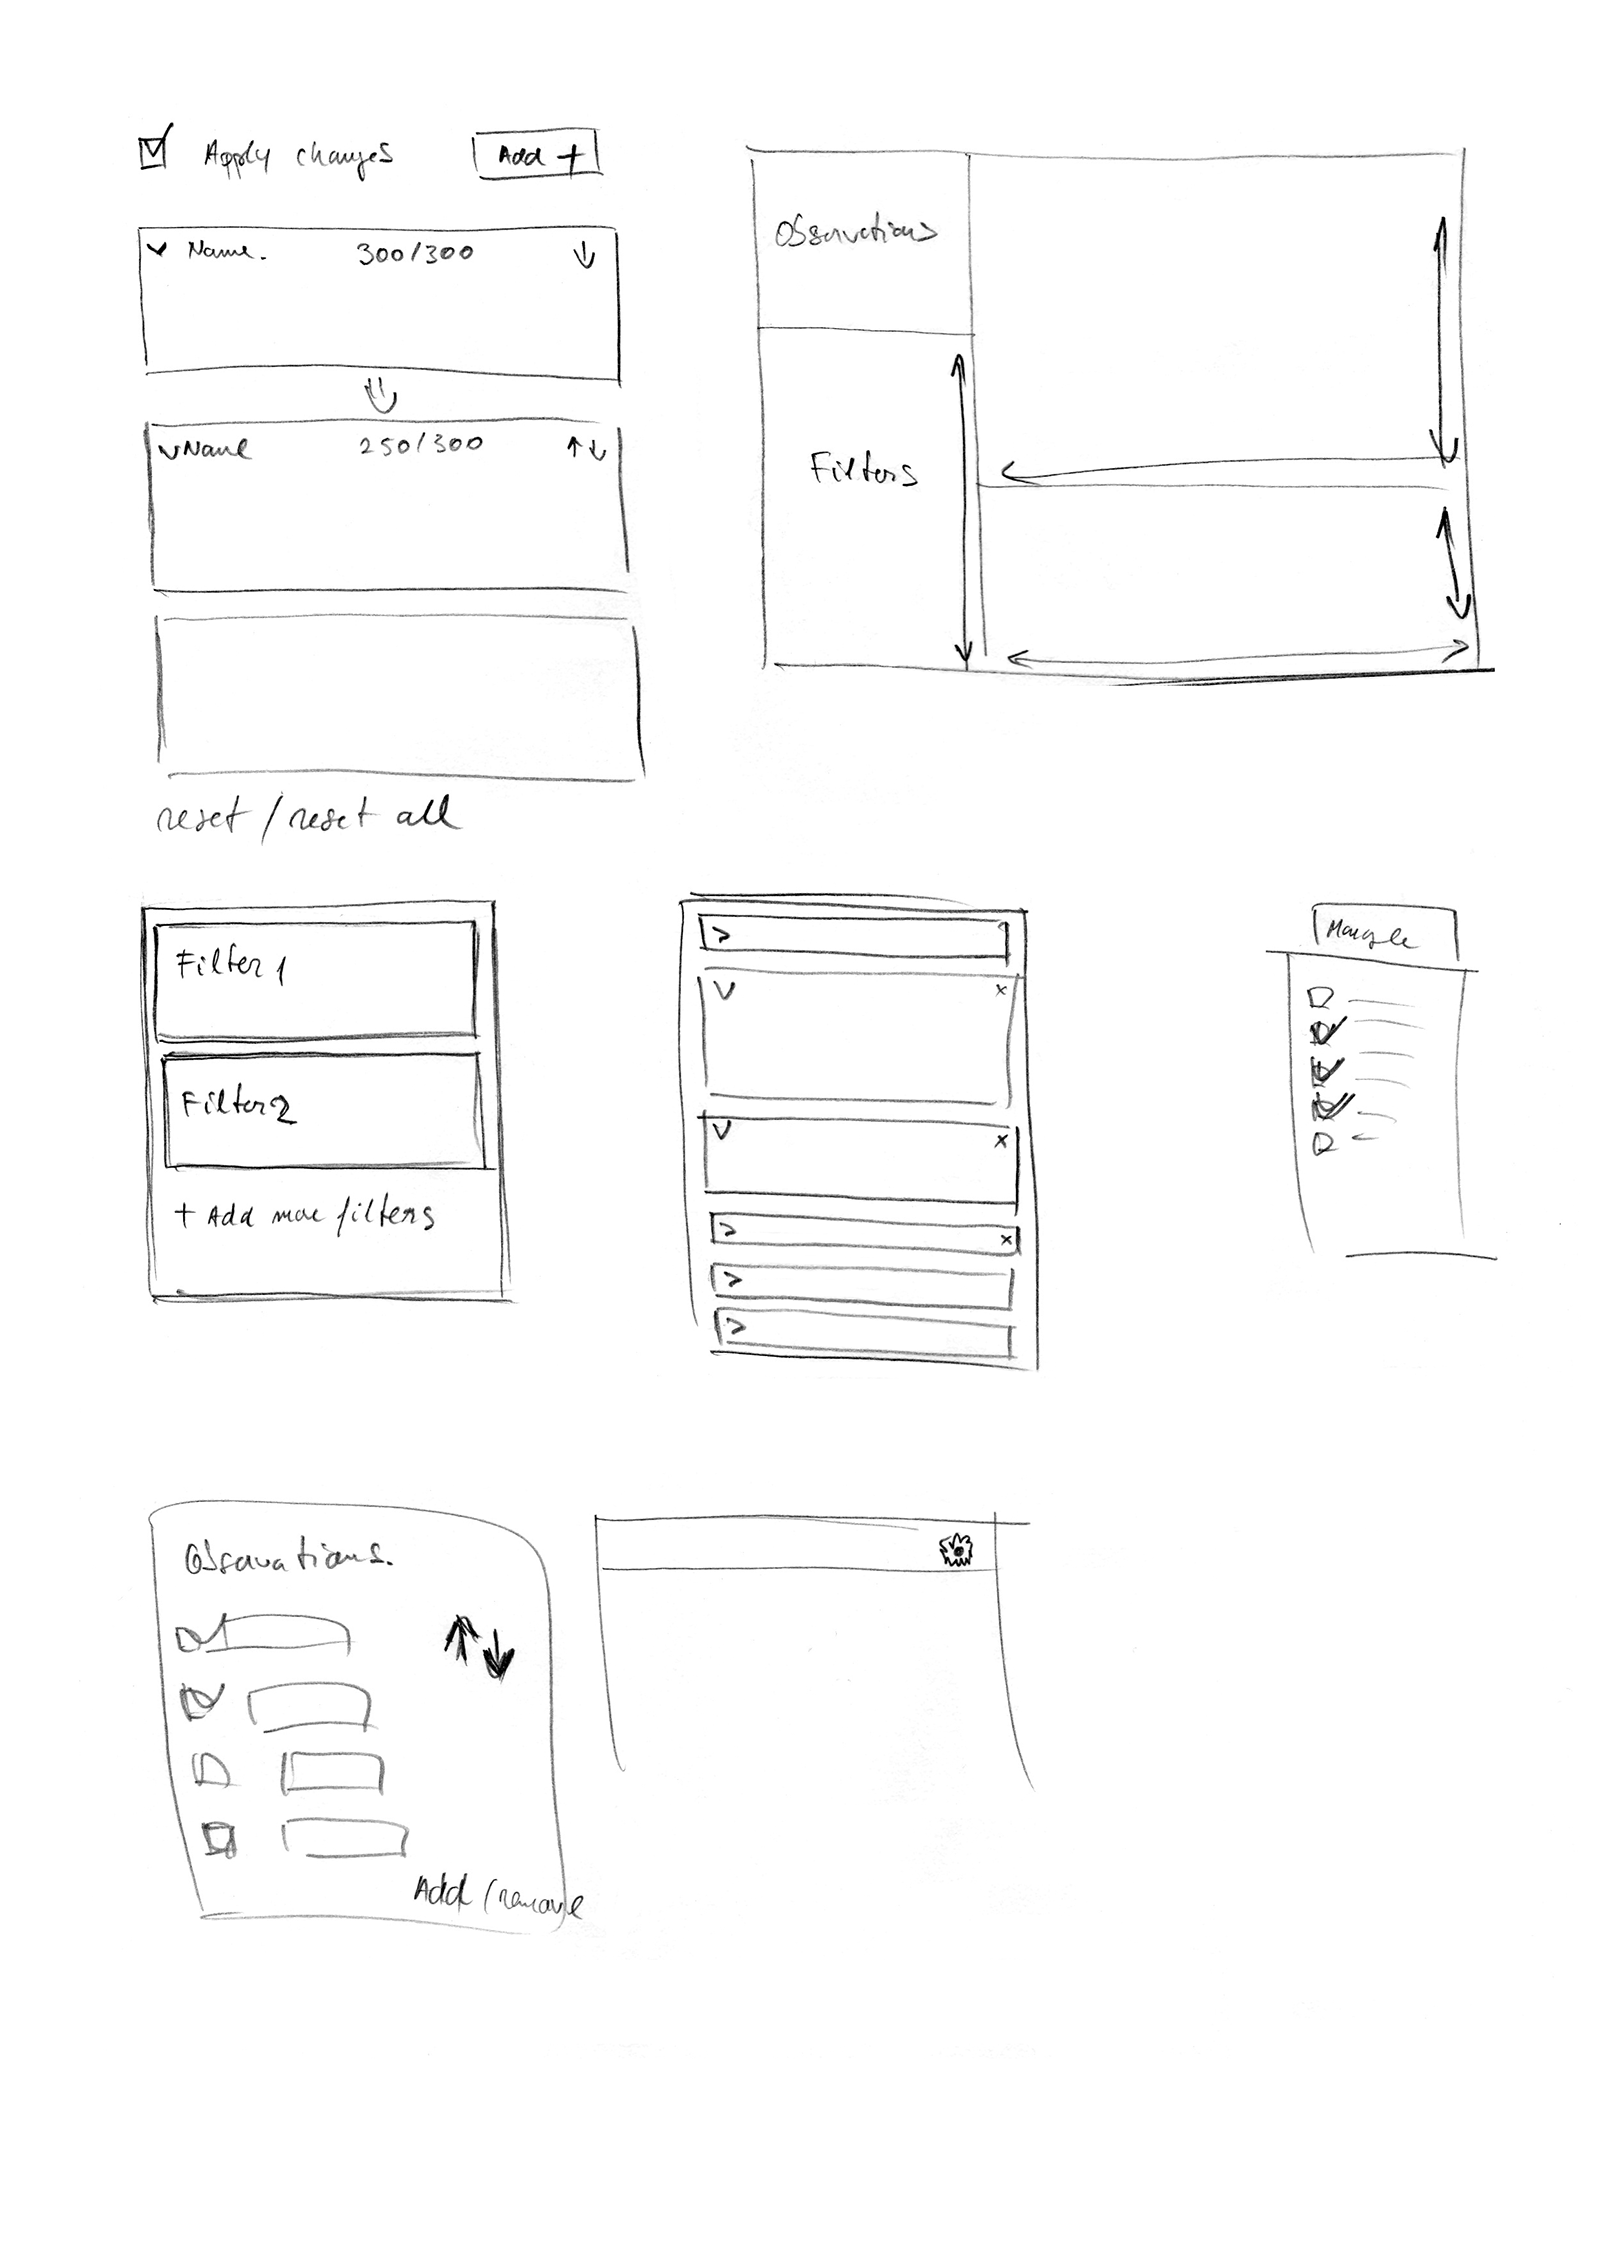 Apply changes
Add +
Name.
300/300
Name
250/300
reset / reset all
Observations
Filters
Filter 1
Filter 2
+ Add more filters
Manage
Observations.
Add / remove